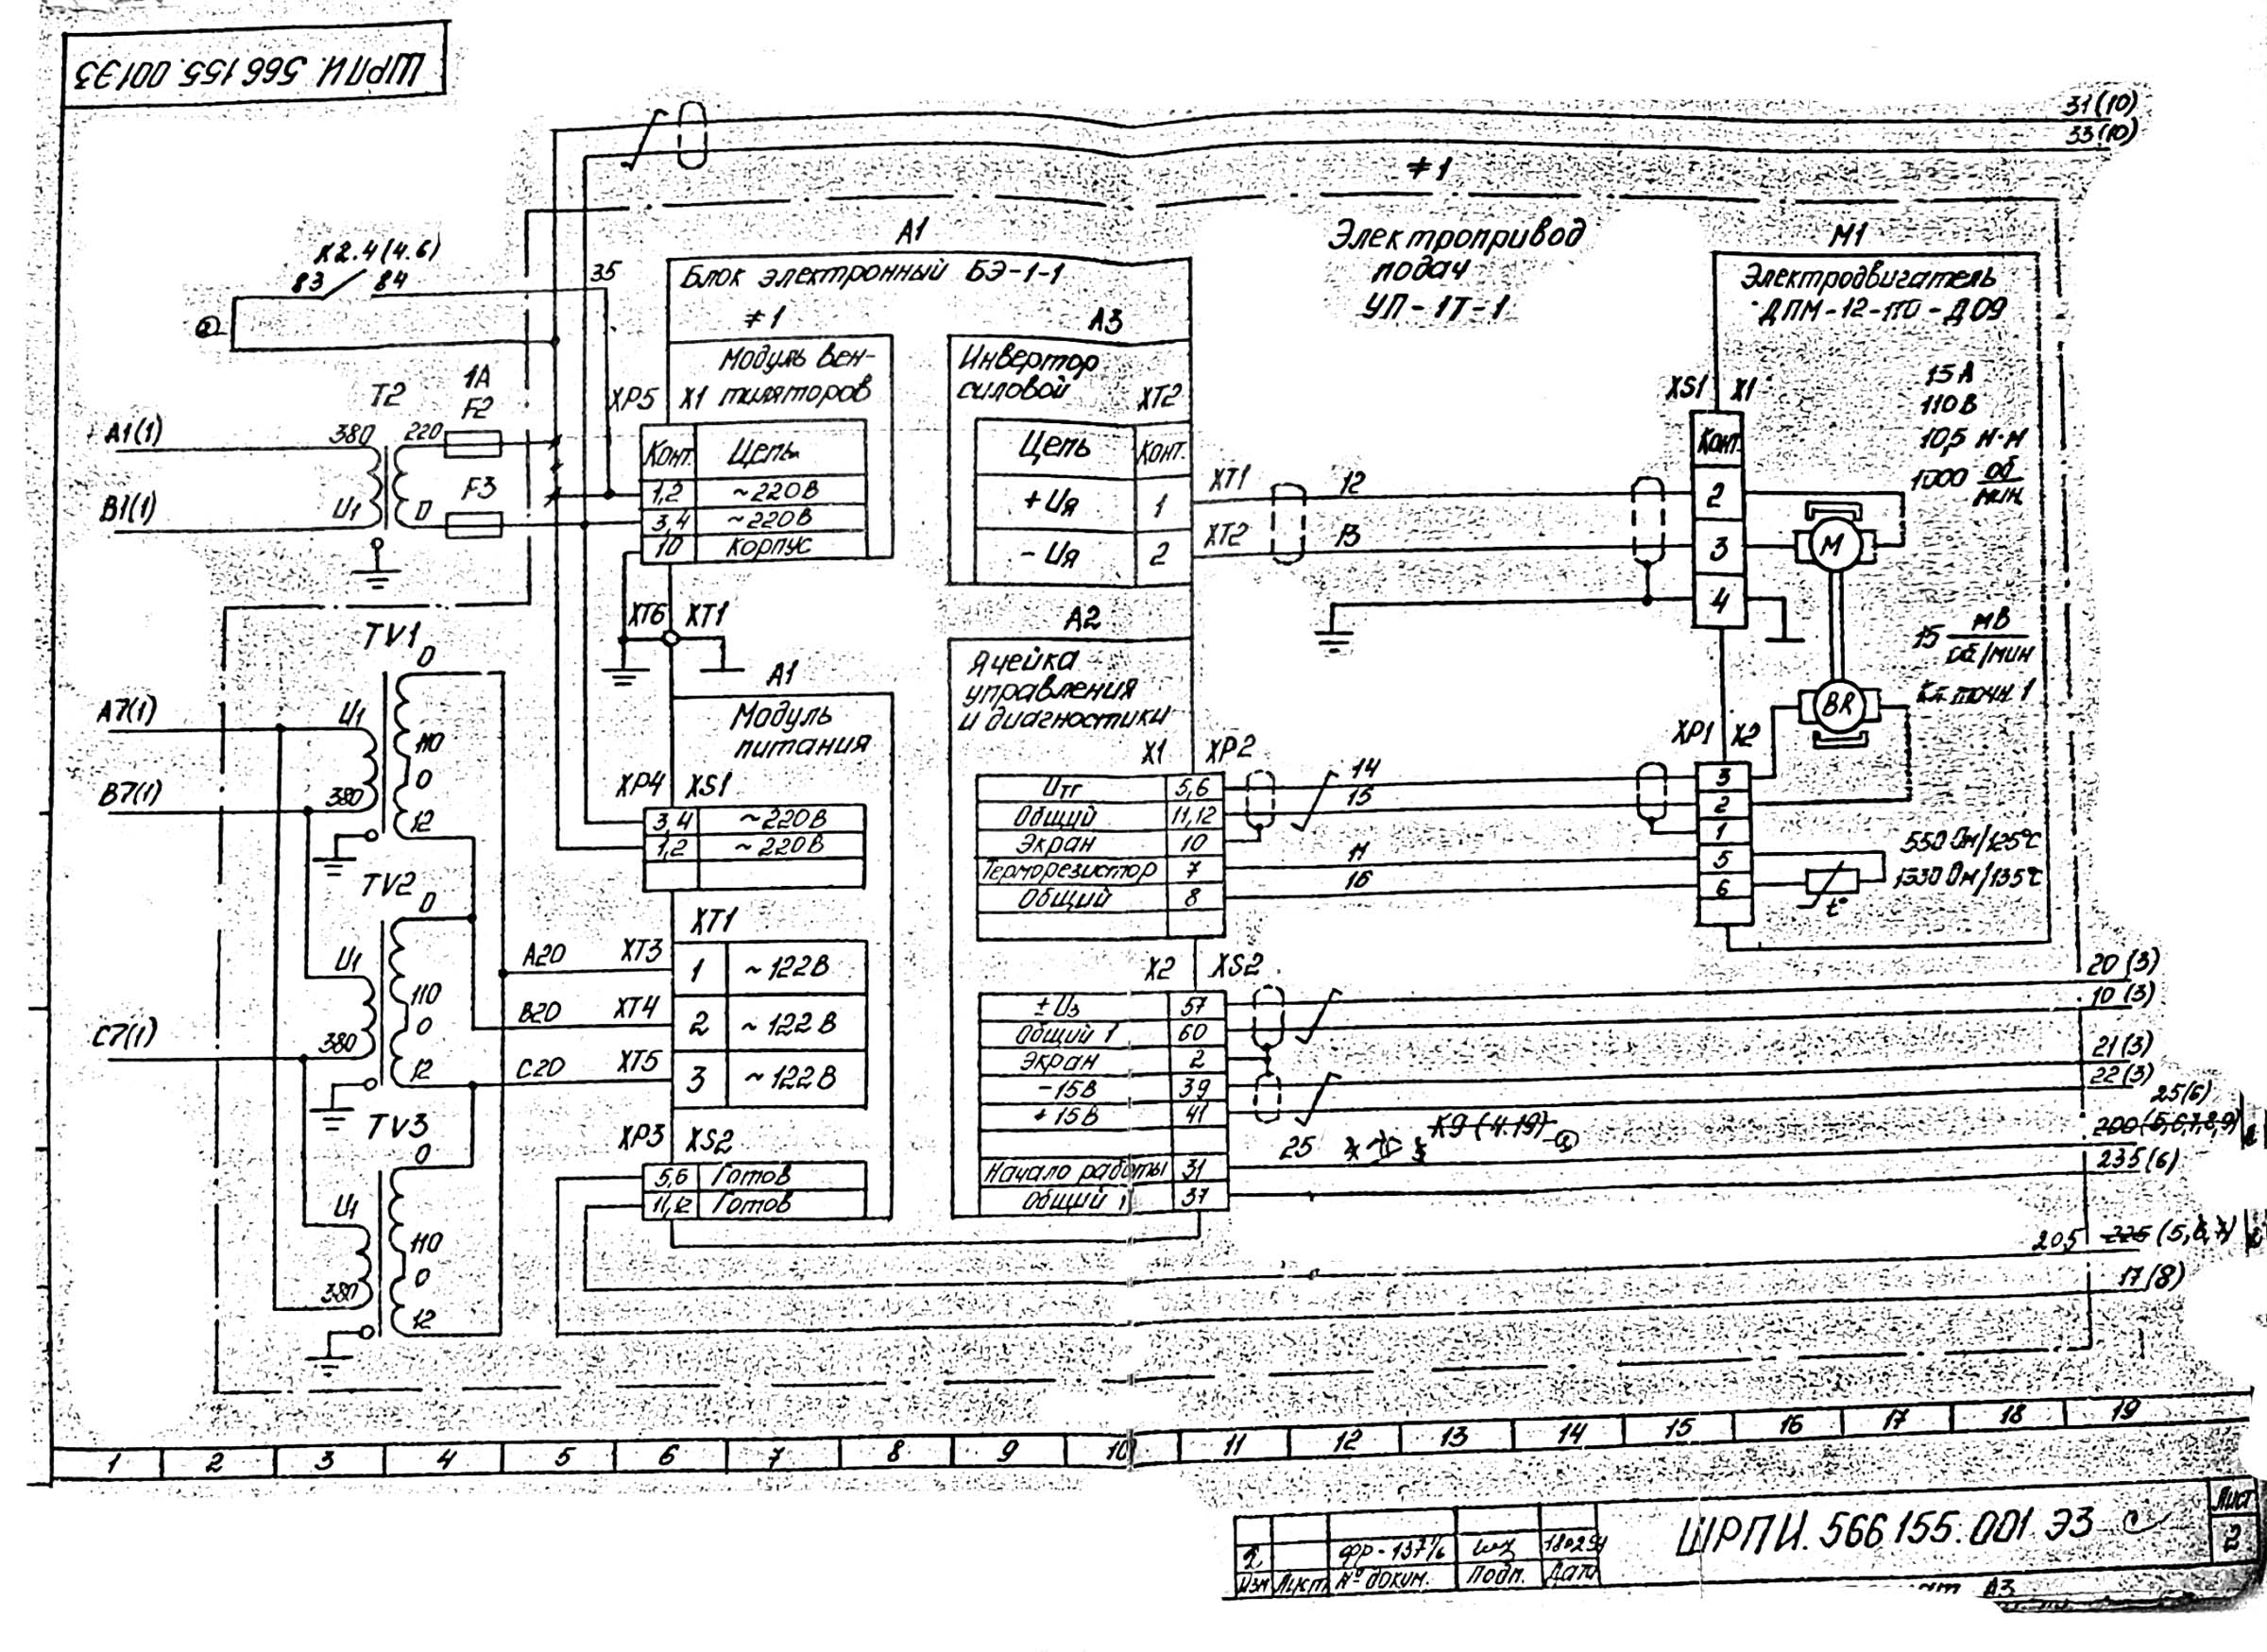 ШРПИ. 566 155. 001 Э3
31(10)
33(10)
≠1
Электропривод
подач
УП-1Т-1
К2.4(4.6)
83 84
35
а
1А
T2 F2
А1(1)
380 220
F3
В1(1)
U1 0
А1
Блок электронный БЭ-1-1
≠1
Модуль вен-
тиляторов
XP5 X1
Конт. Цепь
1,2 ~220В
3,4 ~220В
10 Корпус
XT6 XT1
А3
Инвертор
силовой
XT2
Цепь Конт.
+Uя 1
-Uя 2
XT1 12
XT2 13
М1
Электродвигатель
ДПМ-12-ПО-Д09
XS1 X1
15А
110В
10,5 н·м
1000 об/мин
Конт.
2
3
4
М
15 мВ
об/мин
Кл. точн. 1
BR
XP1 X2
3
2
1
5
6
550 Ом/125°С
1330 Ом/135°С
t°
TV1
0
А7(1)
U1
110
0
В7(1)
380
12
TV2
0
U1
110
0
С7(1)
380
12
TV3
0
U1
110
0
380
12
А1
Модуль
питания
XP4 XS1
3,4 ~220В
1,2 ~220В
XT1
А20 XT3 1 ~122В
В20 XT4 2 ~122В
С20 XT5 3 ~122В
XP3 XS2
5,6 Готов
11,12 Готов
А2
Ячейка
управления
и диагностики
X1 XP2
Uтг 5,6 14
Общий 11,12 15
Экран 10
Терморезистор 7 11
Общий 8 16
X2 XS2
±Uз 57
Общий 1 60
Экран 2
-15В 39
+15В 41
Начало работы 31
Общий 1 37
25 К9(4.19) а
20(3)
10(3)
21(3)
22(3)
25(6)
200(5,6,7,8,9)
235(6)
205 225 (5,6,7)
17(8)
1 2 3 4 5 6 7 8 9 10 11 12 13 14 15 16 17 18 19
ФР-137/6
Изм Лист № докум. Подп. Дата
ШРПИ. 566 155. 001 Э3
Лист
2
А3